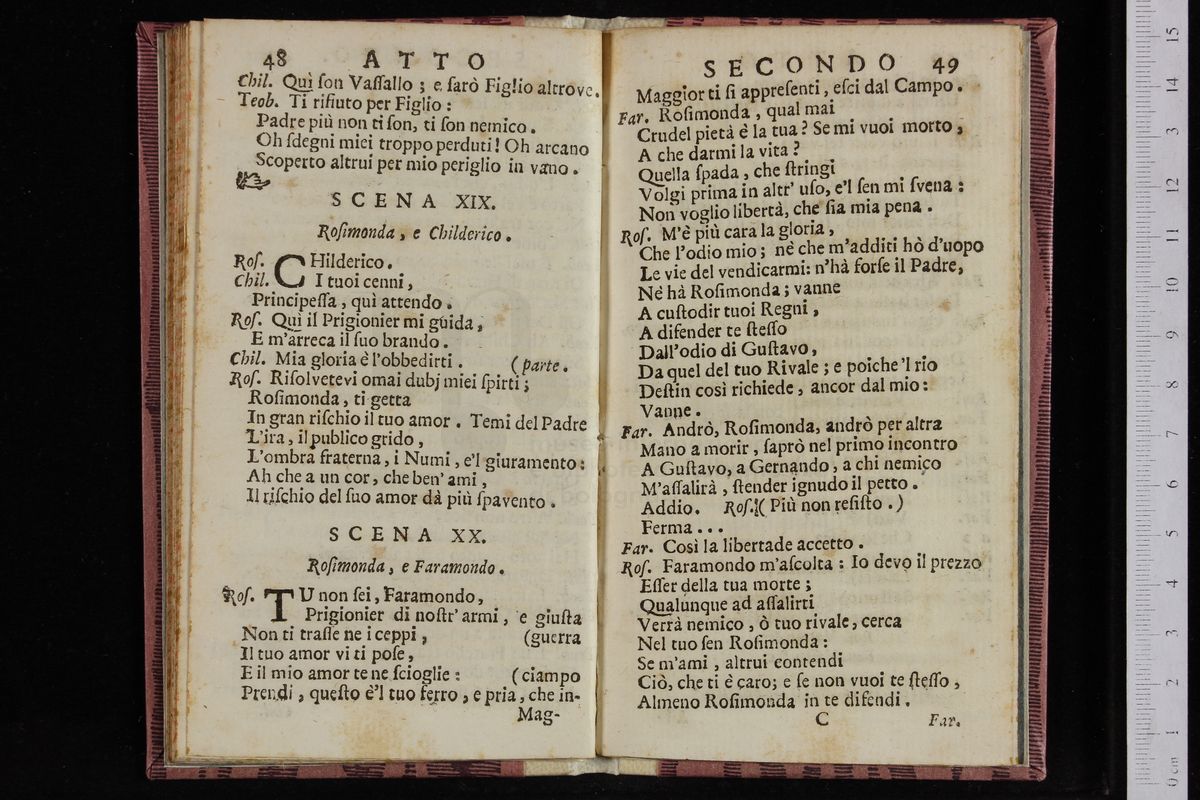 48 ATTO
Chil. Quì ſon Vaſſallo ; e ſarò Figlio altrove.
Teob. Ti rifiuto per Figlio :
Padre più non ti ſon, ti ſon nemico .
Oh ſdegni miei troppo perduti! Oh arcano
Scoperto altrui per mio periglio in vano .
SCENA XIX.
Roſimonda , e Childerico .
Roſ. CHilderico .
Chil. I tuoi cenni ,
Principeſſa , quì attendo .
Roſ. Quì il Prigionier mi guida ,
E m'arreca il ſuo brando .
Chil. Mia gloria è l'obbedirti . (parte .
Roſ. Riſolvetevi omai dubj miei ſpirti ;
Roſimonda , ti getta
In gran riſchio il tuo amor . Temi del Padre
L'ira , il publico grido ,
L'ombra fraterna , i Numi , e'l giuramento :
Ah che a un cor, che ben' ami ,
Il riſchio del ſuo amor dà più ſpavento .
SCENA XX.
Roſimonda , e Faramondo .
Roſ. TU non ſei, Faramondo ,
Prigionier di noſtr' armi , e giuſta
Non ti traſſe ne i ceppi , (guerra
Il tuo amor vi ti poſe ,
E il mio amor te ne ſcioglie : (ciampo
Prendi , queſto è'l tuo ferro , e pria , che in-
Mag-
SECONDO 49
Maggior ti ſi appreſenti , eſci dal Campo .
Far. Roſimonda , qual mai
Crudel pietà è la tua ? Se mi vuoi morto ,
A che darmi la vita ?
Quella ſpada , che ſtringi
Volgi prima in altr' uſo, e'l ſen mi ſvena :
Non voglio libertà, che ſia mia pena .
Roſ. M'è più cara la gloria ,
Che l'odio mio ; nè che m'additi hò d'uopo
Le vie del vendicarmi: n'hà forſe il Padre,
Nè hà Roſimonda ; vanne
A cuſtodir tuoi Regni ,
A difender te ſteſſo
Dall'odio di Guſtavo ,
Da quel del tuo Rivale ; e poiche 'l rio
Deſtin così richiede , ancor dal mio :
Vanne .
Far. Andrò, Roſimonda, andrò per altra
Mano a morir , ſaprò nel primo incontro
A Guſtavo, a Gernando , a chi nemico
M'aſſalirà , ſtender ignudo il petto .
Addio. Roſ. ( Più non reſiſto . )
Ferma . . .
Far. Così la libertade accetto .
Roſ. Faramondo m'aſcolta : Io devo il prezzo
Eſſer della tua morte ;
Qualunque ad aſſalirti
Verrà nemico , ò tuo rivale , cerca
Nel tuo ſen Roſimonda :
Se m'ami , altrui contendi
Ciò, che ti è caro; e ſe non vuoi te ſteſſo ,
Almeno Roſimonda in te difendi .
C Far.
0 cm 1 2 3 4 5 6 7 8 9 10 11 12 13 14 15